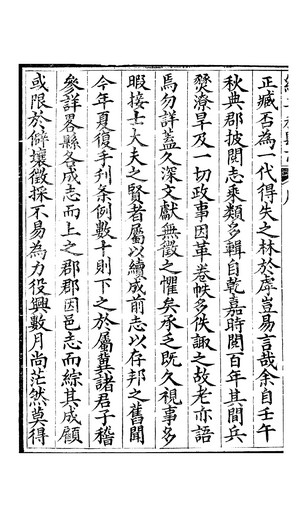 正臧否為一代得失之林於虖豈易言哉余自壬午
秋典郡披閱志乘類多輯自乾嘉時閱百年其間兵
燹潦旱及一切政事因革卷帙多佚諏之故老亦語
焉勿詳蓋久深文獻無徵之懼矣承乏既久視事多
暇接士大夫之賢者屬以續成前志以存邦之舊聞
今年夏復手刊條例數十則下之於屬冀諸君子稽
參詳畧縣各成志而上之郡郡因邑志而綜其成顧
或限於僻壤徵採不易為力役興數月尚茫然莫得